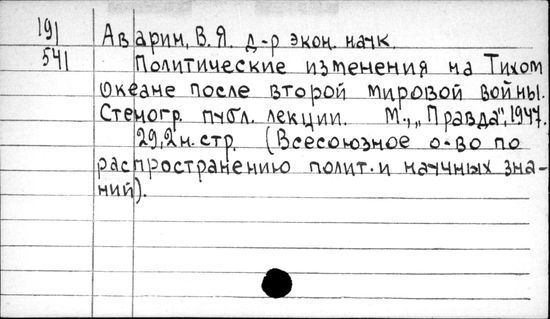 191 Аварин, В.Я. д-р экон. наук.
541 Политические изменения на Тихом
океане после второй мировой войны.
Стеногр. публ. лекции. М., „Правда", 1947.
29,2н. стр. (Всесоюзное о-во по
распространению полит. и научных зна-
ний).